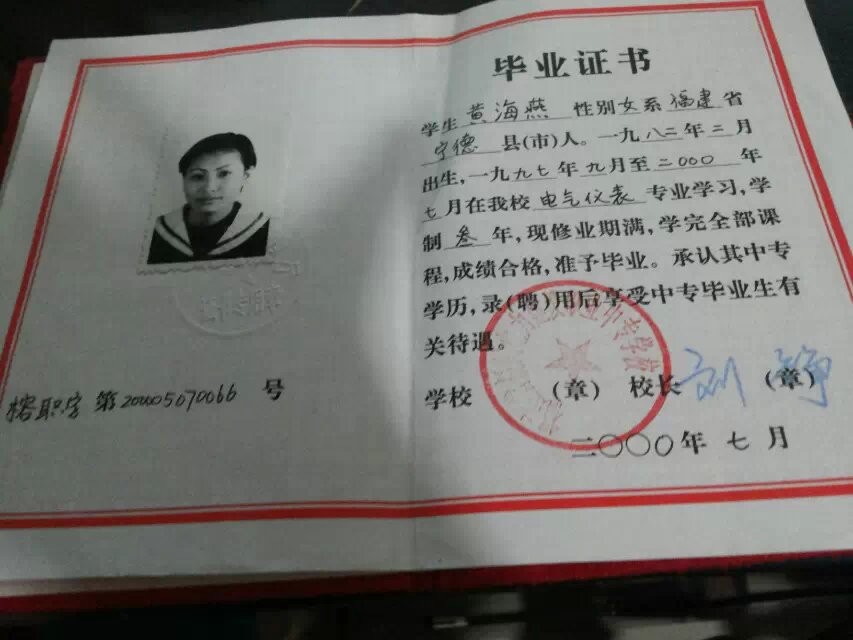 毕业证书
学生 黄海燕 性别 女 系 福建 省
宁德 县(市)人。一九八三年二月
出生,一九九七年九月至二000年
七月在我校 电气仪表 专业学习,学
制 叁 年,现修业期满,学完全部课
程,成绩合格,准予毕业。承认其中专
学历,录(聘)用后享受中专毕业生有
关待遇。
学校 (章) 校长 (章)
二〇〇〇年 七 月
榕职字 第200005070066 号